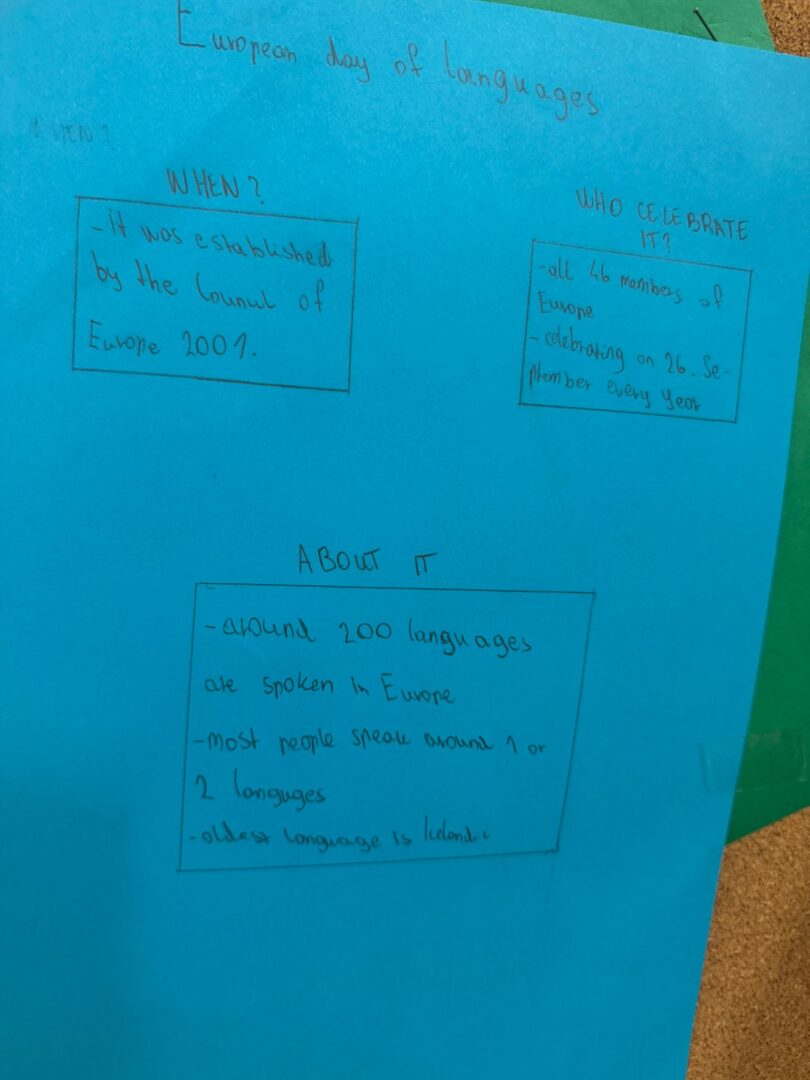 European day of languages
WHEN?
- It was established
by the Counul of
Europe 2001.
WHO CELEBRATE
IT?
- all 46 members of
Europe
- celebrating on 26. Se-
ptember every year
ABOUT IT
- around 200 languages
are spoken in Europe
- most people speak around 1 or
2 languges
- oldest language is Icelandic